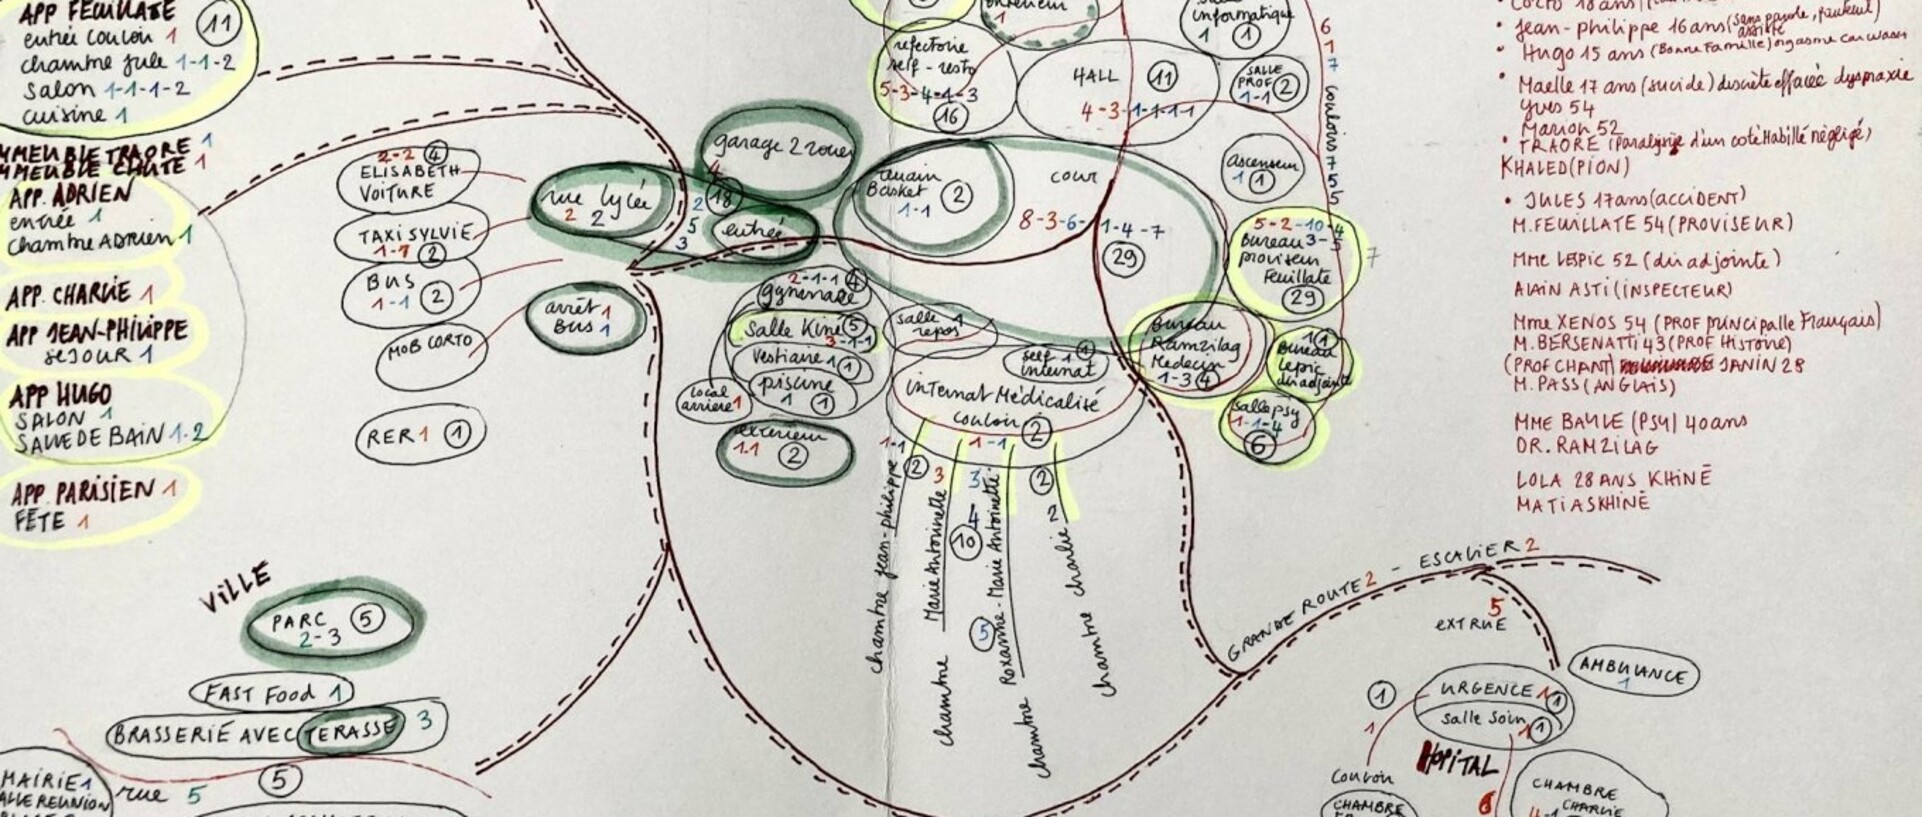 APP FEUILLATE
entrée couloir 1
11
chambre Jule 1-1-2
Salon 1-1-1-2
cuisine 1
IMMEUBLE TRAORE 1
IMMEUBLE CHUTE 1
APP. ADRIEN
entrée 1
chambre ADRIEN 1
APP. CHARLIE 1
APP JEAN-PHILIPPE
SEJOUR 1
APP HUGO
SALON 1
SALLE DE BAIN 1-2
APP. PARISIEN 1
FÊTE 1
2-2 4
ELISABETH
VOITURE
TAXI SYLVIE
1-1 2
BUS
1-1 2
MOB CORTO
RER 1 1
rue lycée
2 2
arrêt 1
BUS 1
garage 2 roues
4
18
2
5
3
entrée
VILLE
PARC 5
2-3
FAST FOOD 1
BRASSERIE AVEC TERASSE 3
5
rue 5
MAIRIE 1
SALLE REUNION
extérieur
1
refectoire
self - resto
5-3-4-1-3
16
HALL 11
4-3-1-1-1-1
informatique
1 1
SALLE
PROF 2
1-1
6
1
7
couloirs
7
5
5
ascenseur
1 1
terrain
Basket 2
1-1
cour
8-3-6-1-4-7
29
5-2-10-4
Bureau 3-5
proviseur
Feuillate
29
7
2-1-1 4
gymnase
Salle Kiné 5
3-1-1
Vestiaire 1 1
piscine
1 1
local
arriere 1
extérieur
1-1 2
salle 1
repos
self 1 1
internat
internat Médicalisé
couloir 2
Bureau
Ramzilag
Medecin
1-3 4
1 1
Bureau
Lepic
dir adjointe
salle psy
1-1-4
6
1-1
2
chambre Jean-philippe
3
chambre Marie Antoinette
3
4
10
5
1-1
chambre Roxanne-Marie Antoinette
2
2
chambre charlie
GRANDE ROUTE 2 - ESCALIER 2
5
EXT RUE
AMBULANCE
1
URGENCE 1 1
salle soin
1 1
1
1
HOPITAL
6
Couloir
CHAMBRE
CHAMBRE
CHARLIE
• Jean-philippe 16 ans (sans parole, fauteuil)
• Hugo 15 ans (Bonne Famille)
• Maelle 17 ans (sucide) discrète effacée dyspraxie
Yves 54
Marion 52
• TRAORE (Paralysie d'un coté habillé négligé)
KHALED (PION)
• JULES 17 ans (ACCIDENT)
M. FEUILLATE 54 (PROVISEUR)
MME LEPIC 52 (dir adjointe)
ALAIN ASTI (INSPECTEUR)
Mme XENOS 54 (PROF principalle Français)
M. BERSENATTI 43 (PROF Histoire)
(PROF CHANT) JANIN 28
M. PASS (ANGLAIS)
MME BAYLE (PSY) 40 ans
DR. RAMZILAG
LOLA 28 ANS KHINÉ
MATIAS KHINÉ